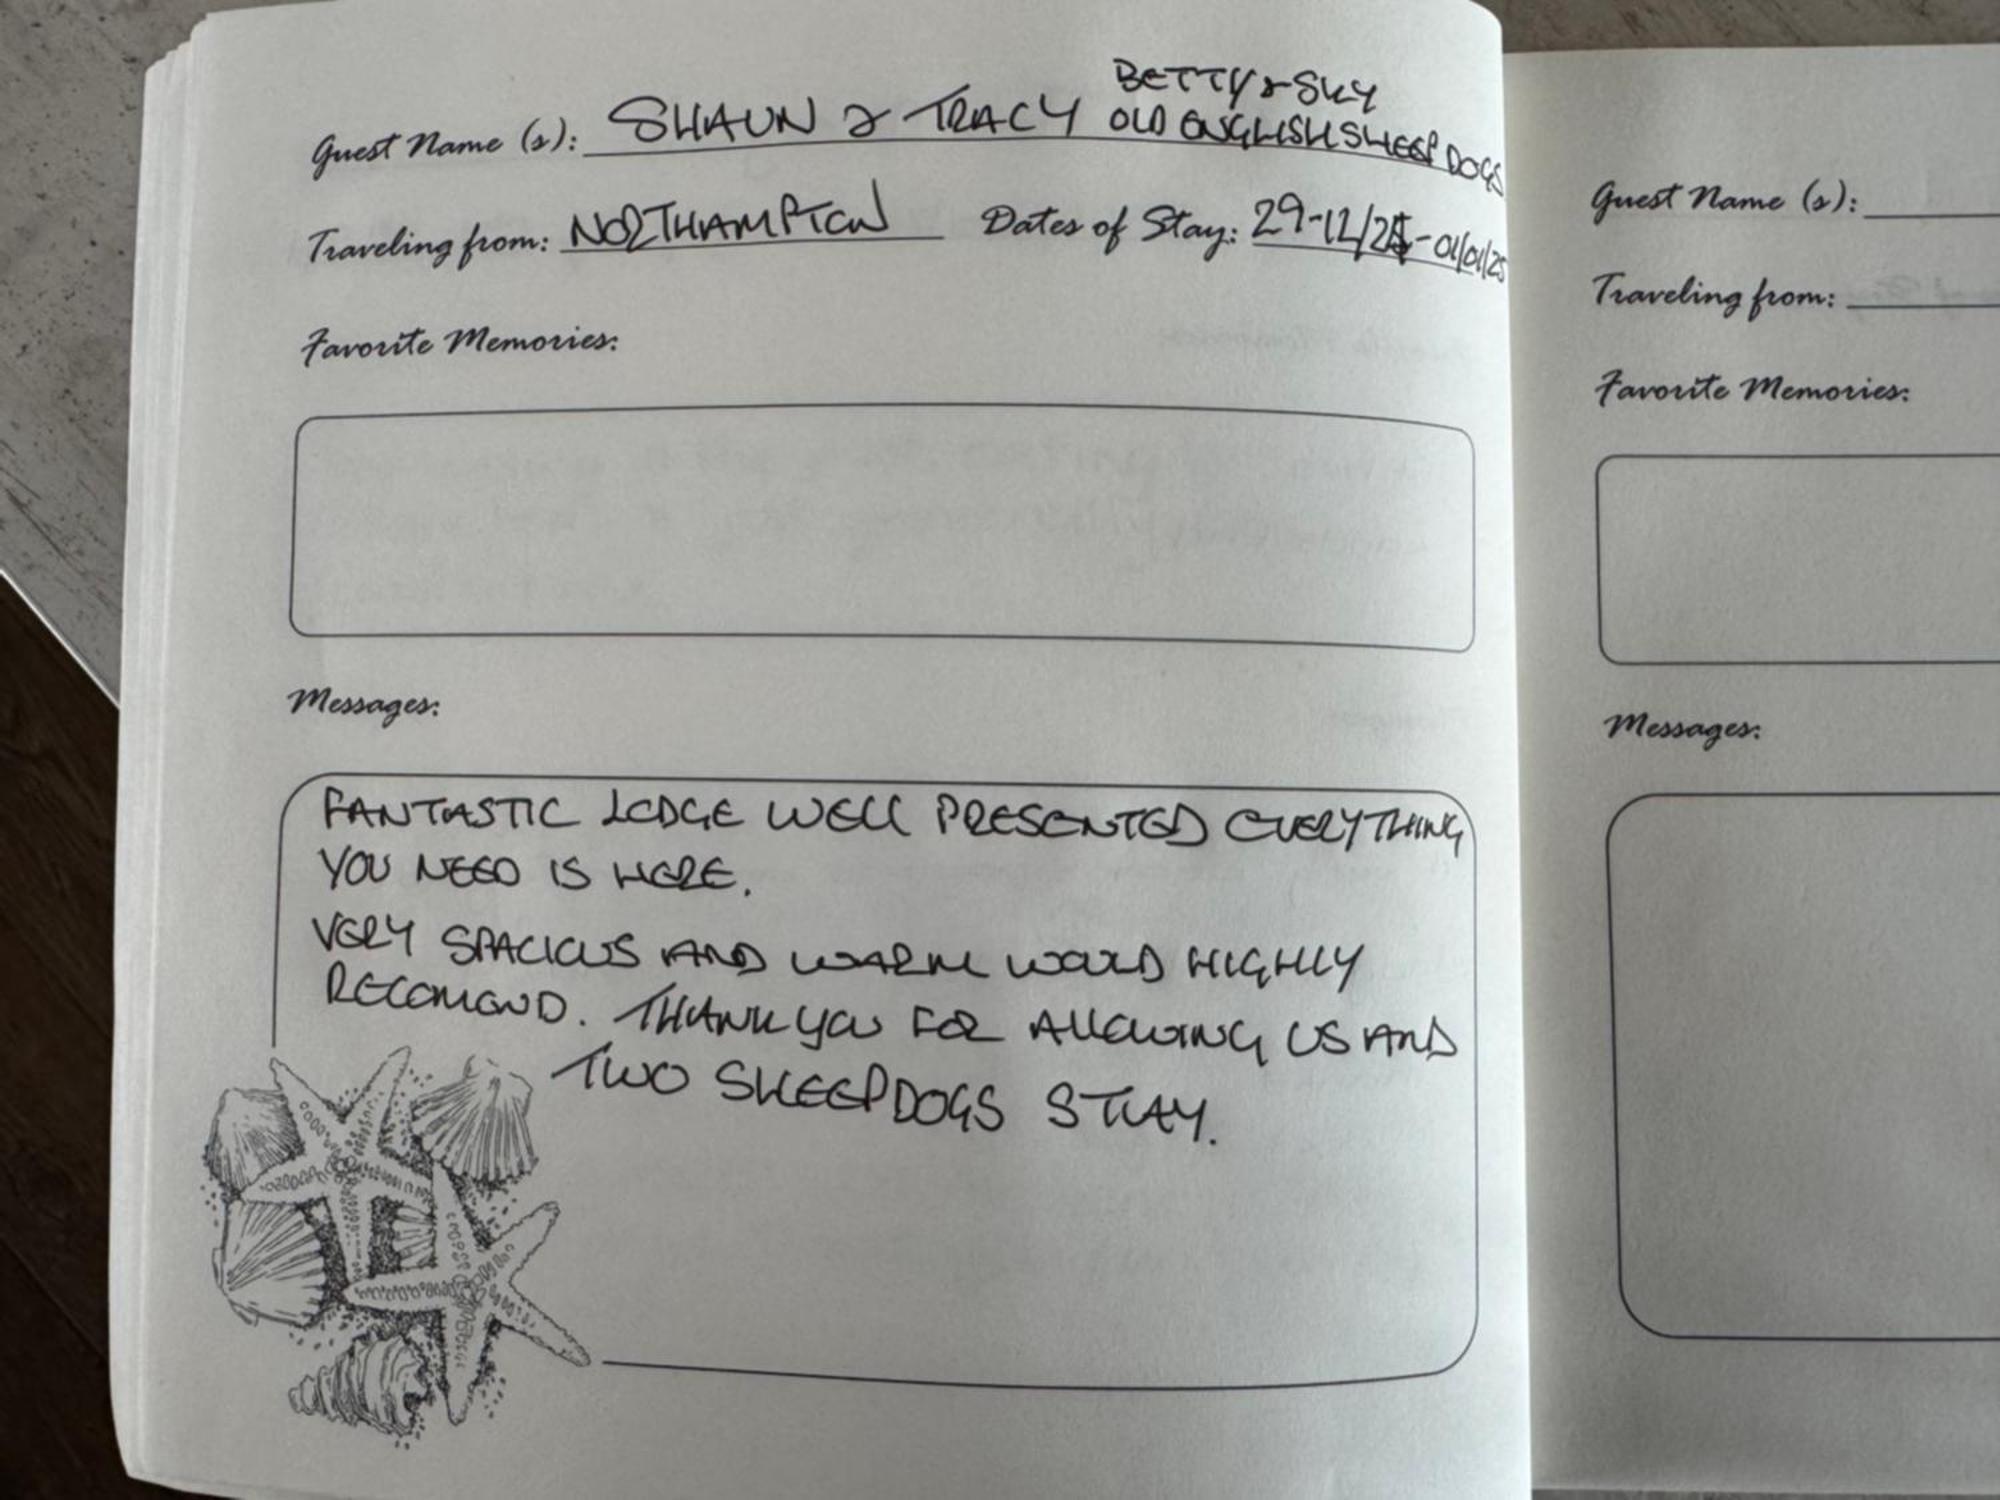 BETTY & SKY
Guest Name (s): SHAUN & TRACY OLD ENGLISH SHEEPDOGS
Traveling from: NORTHAMPTON Dates of Stay: 29-12/24-01/01/25
Favorite Memories:
Messages:
FANTASTIC LODGE WELL PRESENTED EVERYTHING
YOU NEED IS HERE.
VERY SPACIOUS AND WARM WOULD HIGHLY
RECOMEND. THANK YOU FOR ALLOWING US AND
TWO SHEEPDOGS STAY.
Guest Name (s):
Traveling from:
Favorite Memories:
Messages: